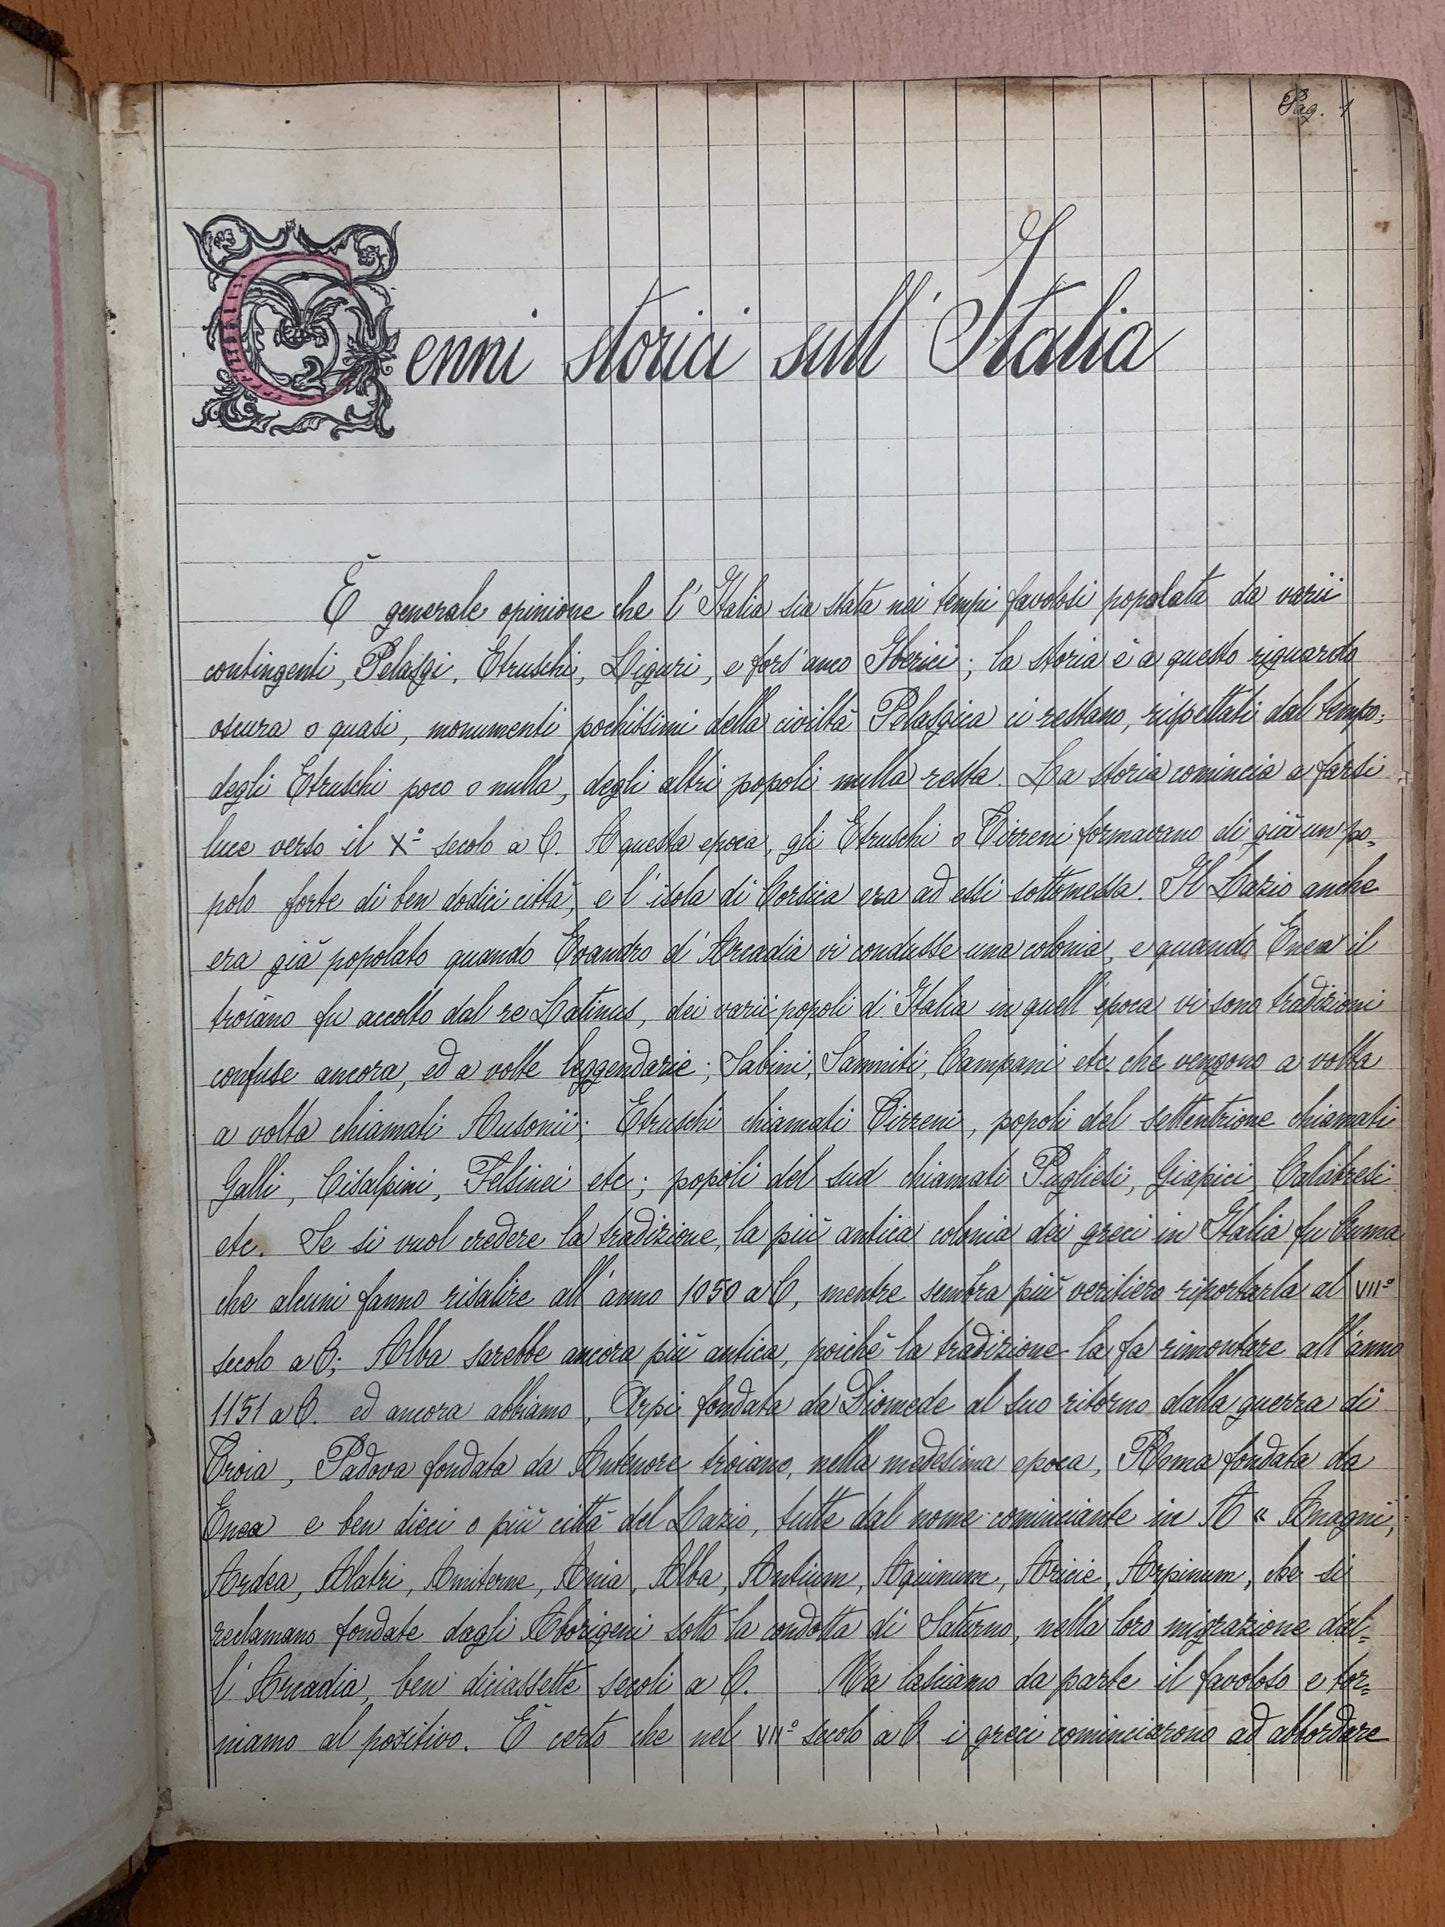 Pag. 1
Cenni storici sull'Italia
È generale opinione che l'Italia sia stata nei tempi favolosi popolata da varii
contingenti, Pelasgi, Etruschi, Liguri, e fors'anco Iberici; la storia è a questo riguardo
oscura o quasi, monumenti pochissimi della civiltà Pelasgica ci restano, rispettati dal tempo;
degli Etruschi poco o nulla, degli altri popoli nulla resta. La storia comincia a farsi
luce verso il X° secolo a C. A questa epoca, gli Etruschi o Tirreni formavano di già un po=
polo forte di ben dodici città, e l'isola di Corsica era ad essi sottomessa. Il Lazio anche
era già popolato quando Evandro d'Arcadia vi condusse una colonia, e quando Enea il
troiano fu accolto dal re Latinus, dei varii popoli d'Italia in quell'epoca vi sono tradizioni
confuse ancora, ed a volte leggendarie; Sabini, Samniti, Campani etc. che vengono a volta
a volta chiamati Ausonii; Etruschi chiamati Tirreni, popoli del settentrione chiamati
Galli, Cisalpini, Felsinei etc; popoli del sud chiamati Pugliesi, Giapici, Calabresi
etc. Se si vuol credere la tradizione, la più antica colonia dei greci in Italia fu Cuma
che alcuni fanno risalire all'anno 1050 a C, mentre sembra più veritiero riportarla al VII°
secolo a C; Alba sarebbe ancora più antica, poichè la tradizione la fa rimontare all'anno
1151 a C. ed ancora abbiamo, Arpi fondata da Diomede al suo ritorno dalla guerra di
Troia, Padova fondata da Antenore troiano, nella medesima epoca, Roma fondata da
Enea e ben dieci o più città del Lazio, tutte dal nome cominciante in A " Anagni,
Ardea, Alatri, Amiterne, Ania, Alba, Antium, Aquinum, Aricie, Arpinum, che si
reclamano fondate dagli Aborigeni sotto la condotta di Saturno, nella loro migrazione dal=
l'Arcadia, ben diciassette secoli a C. Ma lasciamo da parte il favoloso e tor=
niamo al positivo. È certo che nel VII° secolo a C i greci cominciarono ad abbordare